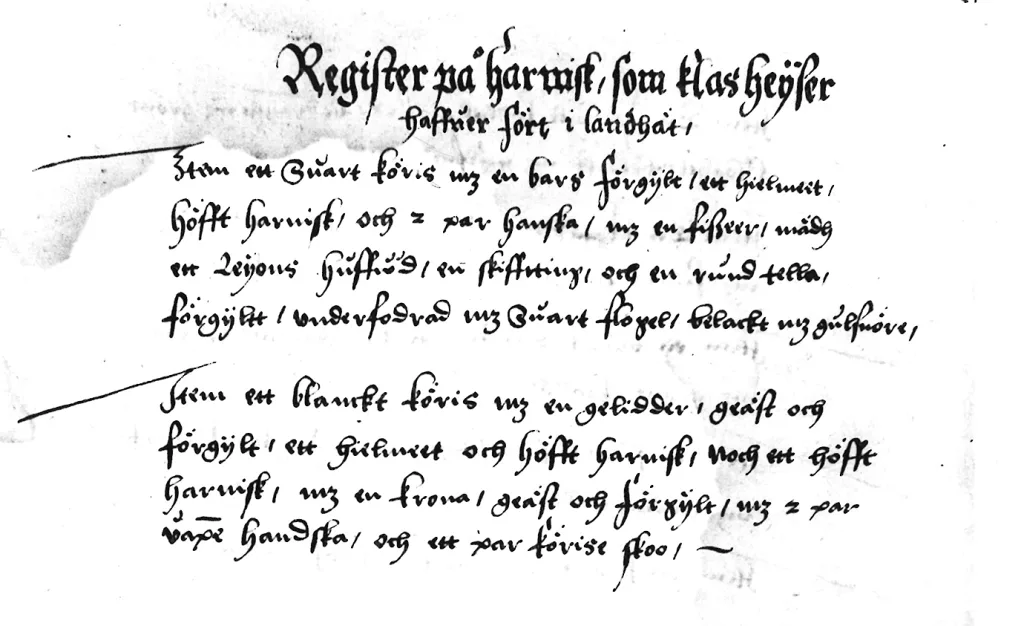 Register på harnisk, som klas heÿser
haffuer fört i landhät,
Item ett Suart köris mz en bars förgÿlt, ett hielmeet,
höfft harnisk, och 2 par hanska, mz en fißeer, mädh
ett Leÿons huffuud, en skiffttinz, och en rund tella,
förgÿltt, vnderfodrad mz Suart flogel, belackt mz gulsnöre,
Item ett blanckt köris mz en gelidder, geäst och
förgÿlt, ett hielmeet och höfft harnisk, noch ett höfft
harnisk, mz en krona, geäst och förgÿlt, mz 2 par
vapē handska, och ett par körise skoo,